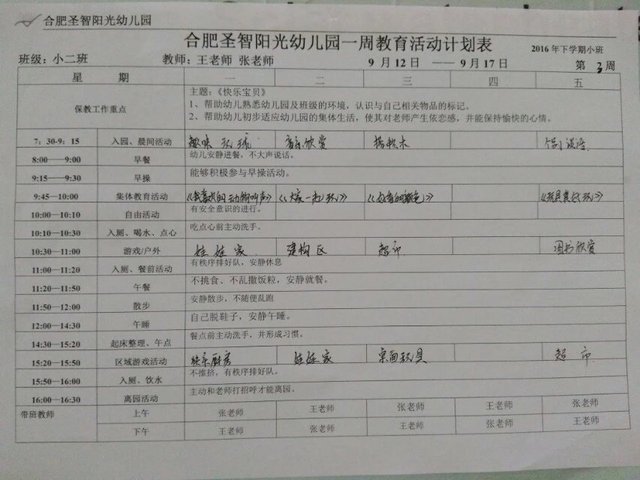 合肥圣智阳光幼儿园
合肥圣智阳光幼儿园一周教育活动计划表
2016 年下学期小班
班级：小二班 教师：王老师 张老师 9 月 12 日 ——9 月 17 日 第 3 周
星 期 一 二 三 四 五
保教工作重点
主题：《快乐宝贝》
1、帮助幼儿熟悉幼儿园及班级的环境，认识与自己相关物品的标记。
2、帮助幼儿初步适应幼儿园的集体生活，使其对老师产生依恋感，并能保持愉快的心情。
7：30-9：15 入园、晨间活动 音乐欣赏 搭积木
8:00——9:00 早餐 幼儿安静进餐，不大声说话。
9:15——9:30 早操 能够积极参与早操活动。
9:45——10:00 集体教育活动 《我喜欢的动物叫声》 《大家一起玩》
10:00——10:10 自由活动 有安全意识的进行。
10:10—10:30 入厕、喝水、点心 吃点心前主动洗手。
10:30—11:00 游戏/户外 娃娃家 建构区 超市 图书欣赏
11:00—11:20 入厕、餐前活动 有秩序排好队，安静休息
11:20—11:50 午餐 不挑食、不乱撒饭粒，安静就餐。
11:50—12:00 散步 安静散步，不随便乱跑
12:00—14:30 午睡 自己脱鞋子，安静午睡。
14:30—15:20 起床整理、午点 餐点前主动洗手，并形成习惯。
15:20—15:50 区域游戏活动 娃娃家 桌面玩具 超市
15:50—16:00 入厕、饮水 不推挤，有秩序排好队。
16:00—16:30 离园活动 主动和老师打招呼才能离园。
带班教师 上午 张老师 王老师 张老师 王老师 张老师
下午 王老师 张老师 王老师 张老师 王老师